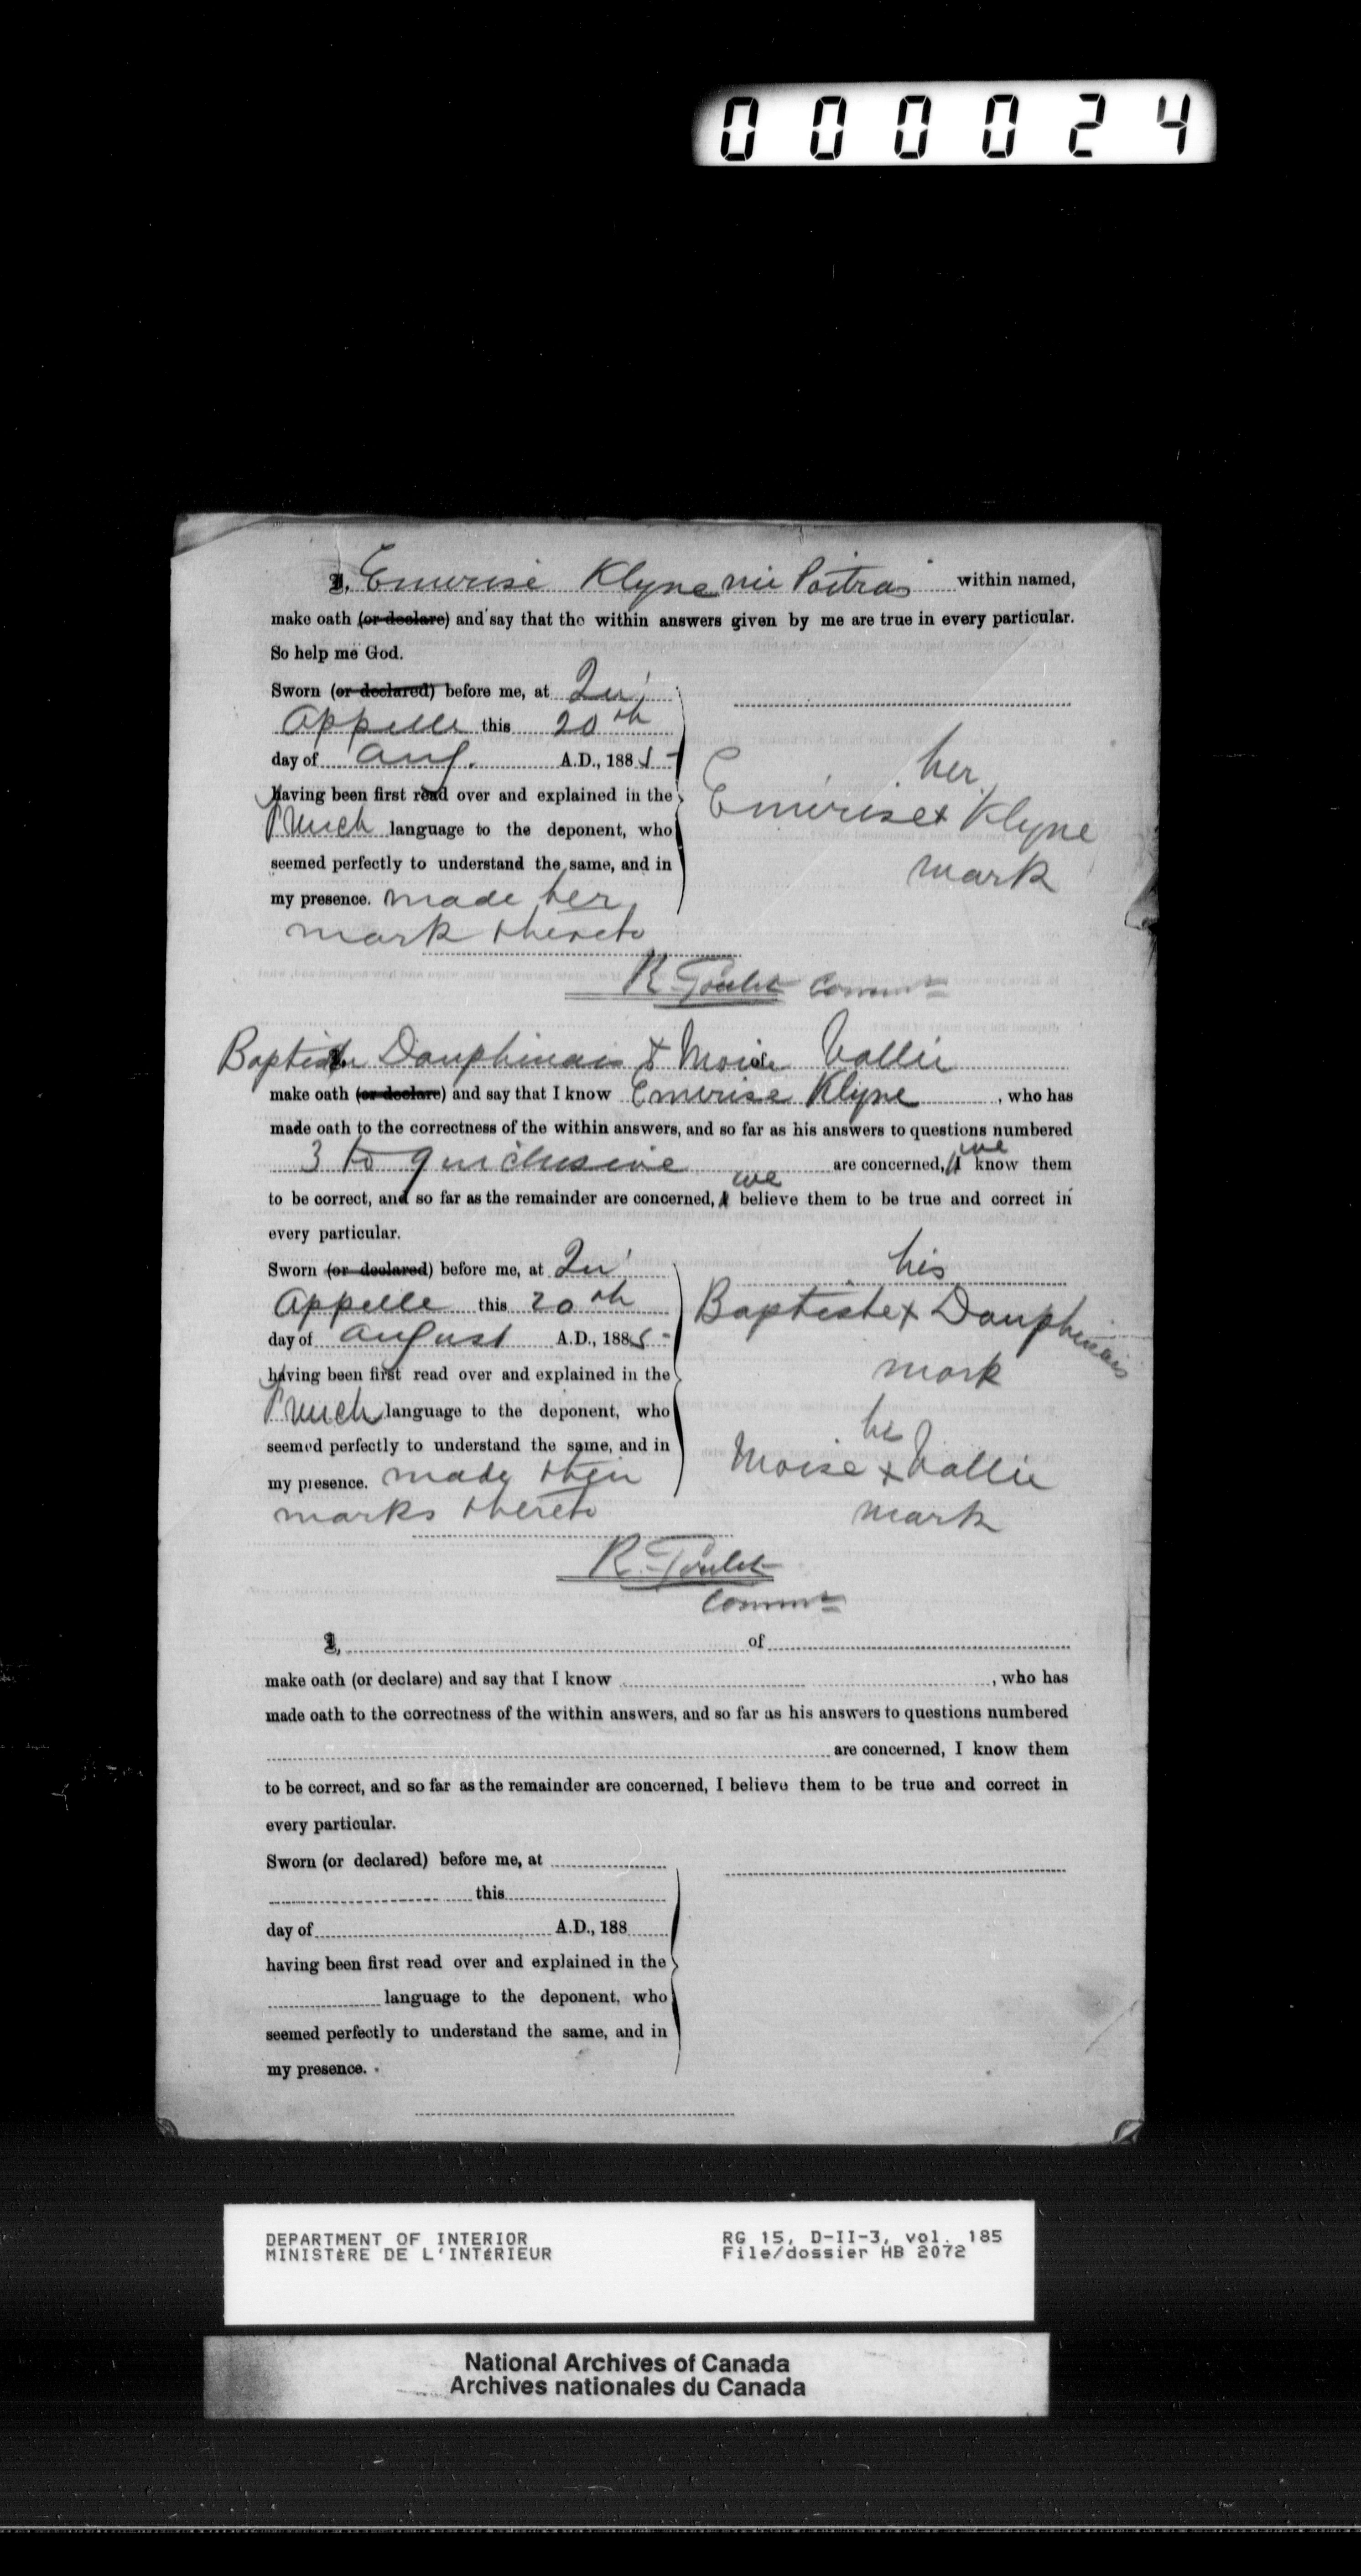 000024
I, Emerise Klyne née Poitras within named,
make oath (or declare) and say that the within answers given by me are true in every particular.
So help me God.
Sworn (or declared) before me, at Qu'
Appelle this 20th
day of Aug. A.D., 1885
having been first read over and explained in the
French language to the deponent, who
seemed perfectly to understand the same, and in
my presence. made her
mark thereto
her
Emerise x Klyne
mark
R. Goulet Commr
Baptiste Dauphinais & Moise Vallie
make oath (or declare) and say that I know Emerise Klyne, who has
made oath to the correctness of the within answers, and so far as his answers to questions numbered
3 to 9 inclusive are concerned, I we know them
to be correct, and so far as the remainder are concerned, I we believe them to be true and correct in
every particular.
Sworn (or declared) before me, at Qu'
Appelle this 20th
day of August A.D., 1885
having been first read over and explained in the
French language to the deponent, who
seemed perfectly to understand the same, and in
my presence. made their
marks thereto
his
Baptiste x Dauphinais
mark
his
Moise x Vallie
mark
R. Goulet
Commr
I, of
make oath (or declare) and say that I know , who has
made oath to the correctness of the within answers, and so far as his answers to questions numbered
are concerned, I know them
to be correct, and so far as the remainder are concerned, I believe them to be true and correct in
every particular.
Sworn (or declared) before me, at
this
day of A.D., 188
having been first read over and explained in the
language to the deponent, who
seemed perfectly to understand the same, and in
my presence.
DEPARTMENT OF INTERIOR
MINISTÈRE DE L'INTÉRIEUR
RG 15, D-II-3, vol. 185
File/dossier HB 2072
National Archives of Canada
Archives nationales du Canada